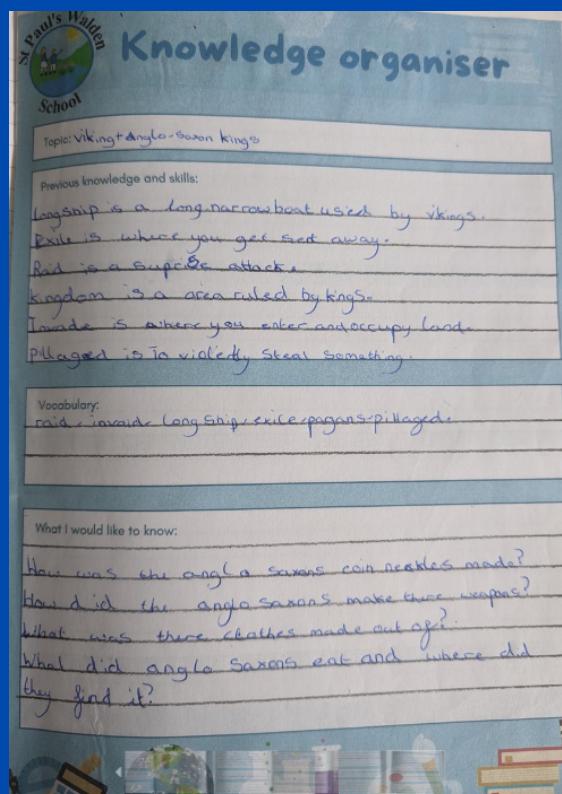 St Paul's Walden
School
Knowledge organiser
Topic: Viking + Anglo-Saxon kings
Previous knowledge and skills:
Longship is a long narrow boat used by vikings.
Exile is where you get sent away.
Raid is a suprise attack.
kingdom is a area ruled by kings.
Invade is where you enter and occupy land.
pillaged is To violetly steal something.
Vocabulary:
raid, invaid, longship, exile, pagans, pillaged.
What I would like to know:
How was the anglo saxons coin neckles made?
How did the anglo saxons make there weapons?
What was there clothes made out of?
What did anglo saxons eat and where did
they find it?